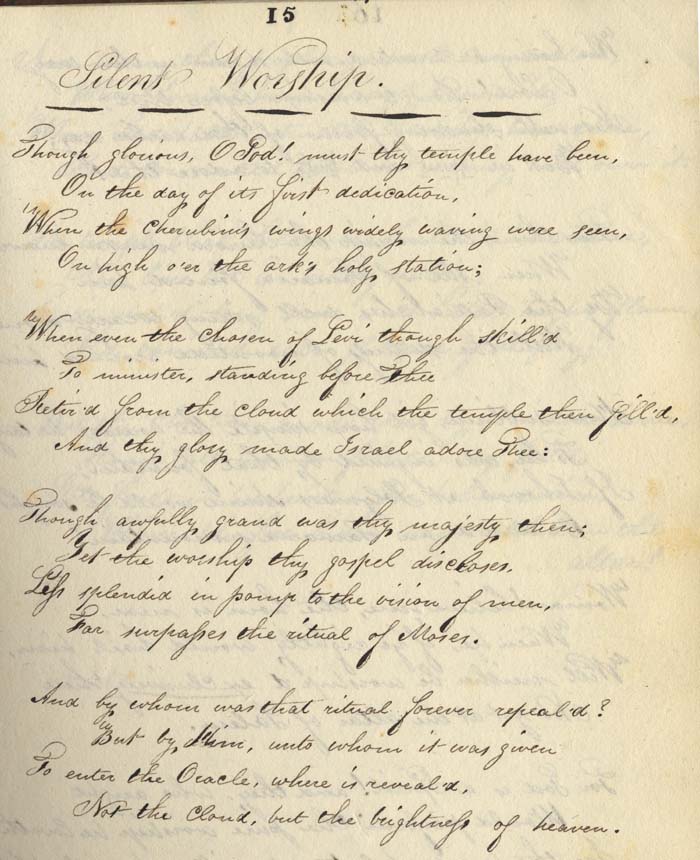 15
Silent Worship.
Though glorious, O God! must thy temple have been,
On the day of its first dedication,
When the Cherubim's wings widely waving were seen,
On high o'er the ark's holy station;
When even the chosen of Levi though skill'd
To minister, standing before Thee
Retir'd from the cloud which the temple then fill'd,
And thy glory made Israel adore Thee:
Though awfully grand was thy majesty then;
Yet the worship thy gospel discloses,
Less splendid in pomp to the vision of men,
Far surpasses the ritual of Moses.
And by whom was that ritual forever repeal'd?
But by Him, unto whom it was given
To enter the Oracle, where is reveal'd,
Not the cloud, but the brightness of heaven.